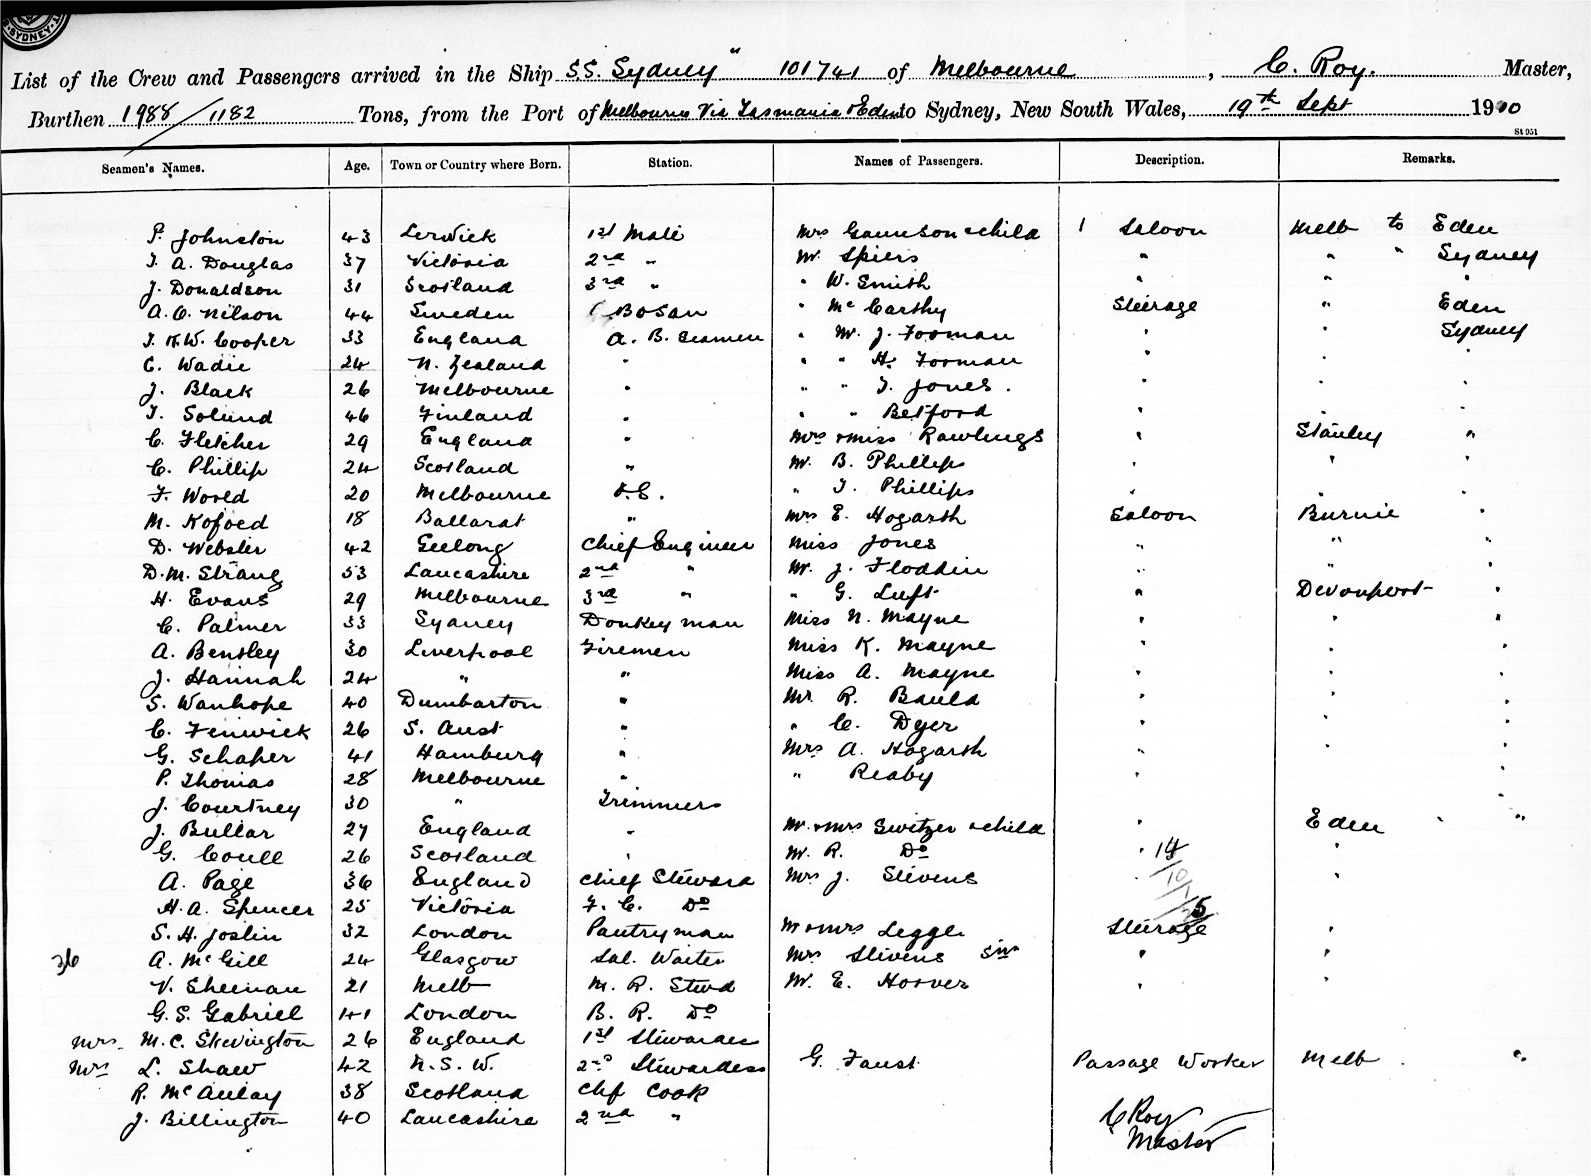 SYDNEY
List of the Crew and Passengers arrived in the Ship S.S. Sydney" 101741 of Melbourne, C. Roy. Master,
Burthen 1988/1182 Tons, from the Port of Melbourne Via Tasmania & Eden to Sydney, New South Wales, 19th Sept 1910
St 951
Seamen's Names. Age. Town or Country where Born. Station. Names of Passengers. Description. Remarks.
P. Johnston 43 Lerwick 1st Mate Mrs & child 1 Saloon Melb to Eden
T. A. Douglas 37 Victoria 2nd " Mr Spiers " " " Sydney
J. Donaldson 31 Scotland 3rd " " W. Smith " " "
A. C. Nilson 44 Sweden Bosan " McCarthy Steerage " Eden
T. H. W. Cooper 33 England A. B. Seamen " Mr. J. Tooman " " Sydney
C. Wadie 24 N. Zealand " " " H. Tooman " " "
J. Black 26 Melbourne " " " T. Jones. " " "
T. Solund 46 Finland " " " Betford " " "
C. Fletcher 29 England " Mrs & Miss Rawlings " Stanley "
C. Phillip 24 Scotland " Mr. B. Phillips " " "
F. World 20 Melbourne " T. Phillips " " "
M. Kofoed 18 Ballarat " Mrs E. Hogarth Saloon Burnie "
D. Webster 42 Geelong Chief Engineer Miss Jones " " "
D. M. Strang 53 Lancashire 2nd " Mr. J. Floddin " " "
H. Evans 29 Melbourne 3rd " " G. Luft " Devonport "
C. Palmer 33 Sydney Donkeyman Miss N. Mayne " " "
A. Bentley 30 Liverpool Firemen Miss K. Mayne " " "
J. Hannah 24 " " Miss A. Mayne " " "
S. Wanhope 40 Dumbarton " Mr R. Bauld " " "
C. Fenwick 26 S. Aust " " C. Dyer " " "
G. Schaper 41 Hamburg " Mrs A. Hogarth " " "
P. Thomas 28 Melbourne " " Reaby " "
J. Courtney 30 " Trimmers "
J. Bullar 27 England " Mr & Mrs Switzer & child " Eden " "
G. Coull 26 Scotland " Mr R. Do " 14 "
A. Page 36 England Chief Steward Mrs J. Stevens " 10 "
H. A. Spencer 25 Victoria F. C. Do 1 25
S. H. Joslin 32 London Pantryman Mr & Mrs Legge Steerage "
36 A. McGill 24 Glasgow Sal. Waiter Mrs Stevens " "
V. Sheenan 21 Melb M. R. Stwd Mr. E. Hoover " "
G. S. Gabriel 41 London B. R. Do
Mrs. M. C. Skevington 26 England 1st Stewardess
Mrs L. Shaw 42 N. S. W. 2nd Stewardess G. Faust Passage Worker Melb "
R. McAulay 38 Scotland Chf Cook
J. Billington 40 Lancashire 2nd "
C Roy
Master